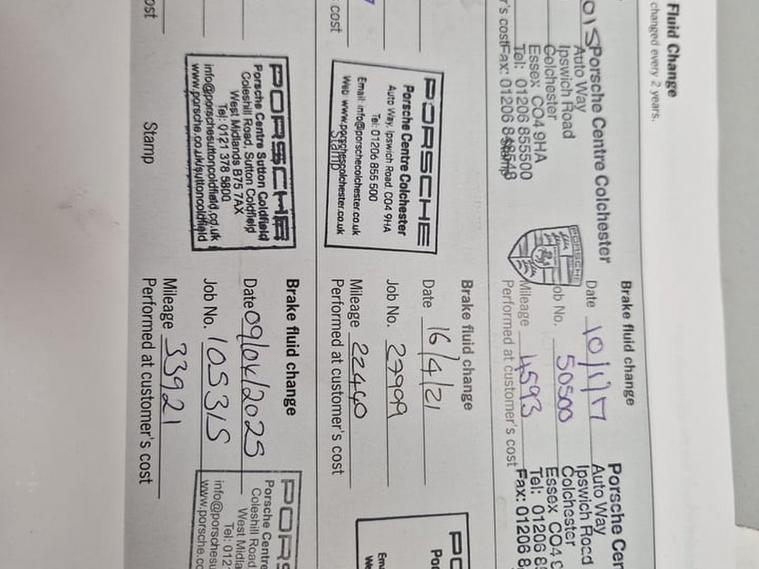 Fluid Change
changed every 2 years.
Porsche Centre Colchester
Auto Way
Ipswich Road
Colchester
Essex CO4 9HA
Tel: 01206 855500
Fax: 01206
PORSCHE
Brake fluid change
Date 10/1/17
Job No. 50500
Mileage 4593
Performed at customer's cost
Porsche Cen
Auto Way
Ipswich Road
Colchester
Essex CO4 9
Tel: 01206 8
Fax: 01206 8
cost
PORSCHE
Porsche Centre Colchester
Auto Way, Ipswich Road, CO4 9HA
Tel: 01206 855 500
Email: info@porschecolchester.co.uk
Web: www.porschecolchester.co.uk
Stamp
Brake fluid change
Date 16/4/21
Job No. 27999
Mileage 22460
Performed at customer's cost
PO
Po
Ema
We
ost
PORSCHE
Porsche Centre Sutton Coldfield
Coleshill Road, Sutton Coldfield
West Midlands B75 7AX
Tel: 0121 378 5800
info@porschesuttoncoldfield.co.uk
www.porsche.co.uk/suttoncoldfield
Stamp
Brake fluid change
Date 09/04/2025
Job No. 105315
Mileage 33921
Performed at customer's cost
PORS
Porsche Centre
Coleshill Road
West Midla
Tel: 012
info@porschesu
www.porsche.